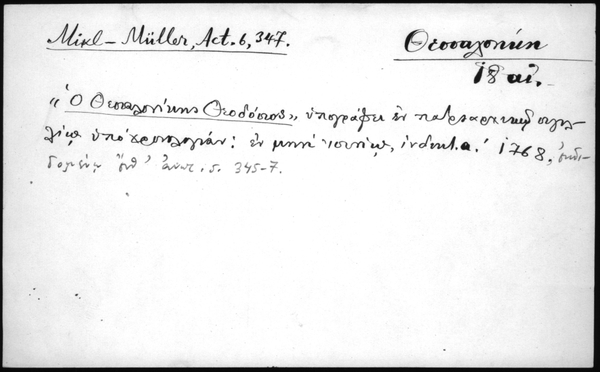 Mikl-Müller, Act. 6, 347.
Θεσσαλονίκη
18 αἰ.
"Ὁ Θεσσαλονίκης Θεοδόσιος", ὑπογράφει ἐν πατριαρχικῷ σιγιλ-
λίῳ ὑπὸ χρονολογίαν: ἐν μηνὶ ἰουνίῳ, ἰνδικτ. α΄ 1768, ἐκδι-
δομένῳ ἀνωτ. σ. 345-7.